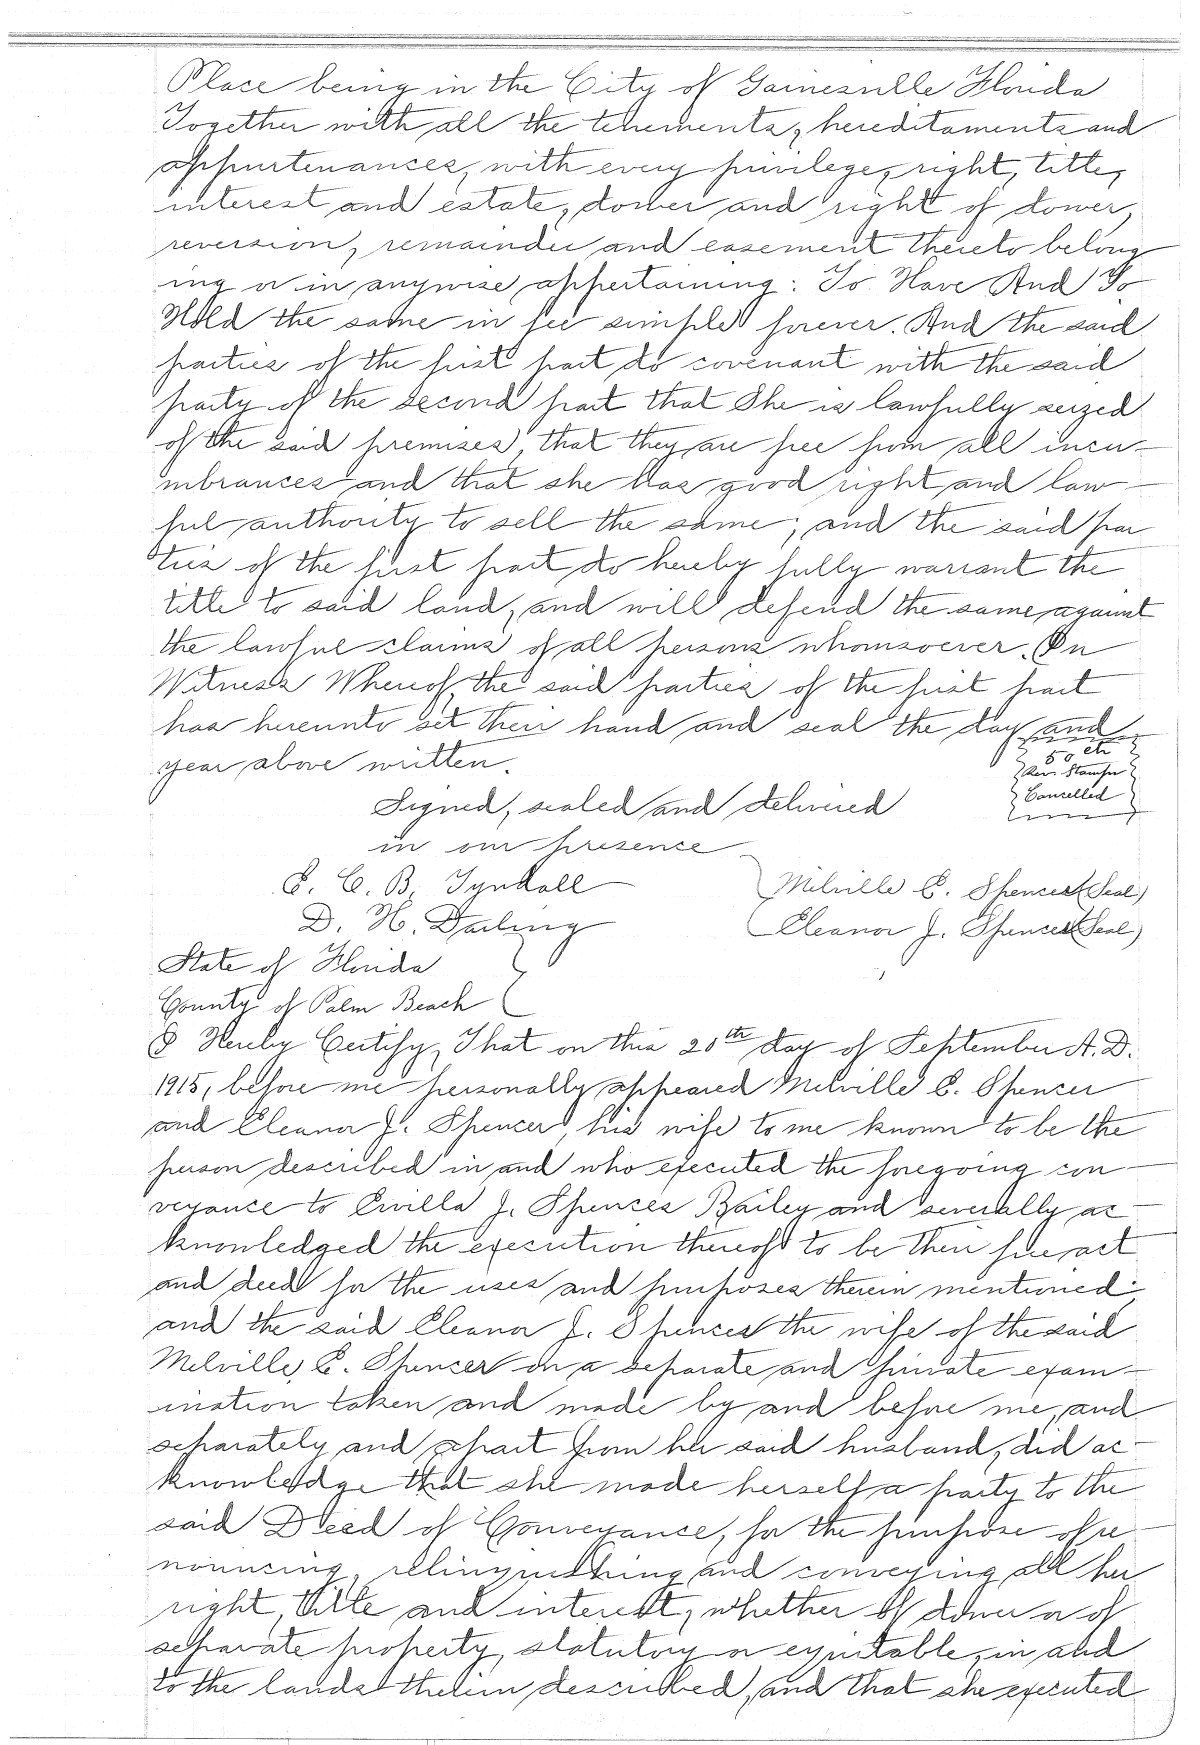 Place being in the City of Gainesville Florida
Together with all the tenements, hereditaments and
appurtenances, with every privilege, right, title,
interest and estate, dower and right of dower,
reversion, remainder and easement thereto belong
ing or in anywise appertaining: To Have And To
Hold the same in fee simple forever. And the said
parties of the first part do covenant with the said
party of the second part that She is lawfully seized
of the said premises, that they are free from all incu-
mbrances and that she has good right and law-
ful authority to sell the same; and the said par
ties of the first part do hereby fully warrant the
title to said land, and will defend the same against
the lawful claims of all persons whomsoever. In
Witness Whereof, the said parties of the first part
has hereunto set their hand and seal the day and
year above written.
50 cts
Rev. Stamps
Cancelled
Signed, sealed and delivered
in our presence
E. C. B. Tyndall
Melville E. Spencer (Seal)
D. H. Darling
Eleanor J. Spencer (Seal)
State of Florida
County of Palm Beach
I Hereby Certify, That on this 20th day of September A.D.
1915, before me personally appeared Melville E. Spencer
and Eleanor J. Spencer, his wife to me known to be the
person described in and who executed the foregoing con-
veyance to Evilla J. Spencer Bailey and severally ac-
knowledged the execution thereof to be their free act
and deed for the uses and purposes therein mentioned;
and the said Eleanor J. Spencer the wife of the said
Melville E. Spencer on a separate and private exam-
ination taken and made by and before me, and
separately and apart from her said husband, did ac-
knowledge that she made herself a party to the
said Deed of Conveyance, for the purpose of re-
nouncing, relinquishing and conveying all her
right, title and interest, whether of dower or of
separate property, statutory or equitable, in and
to the lands therein described, and that she executed